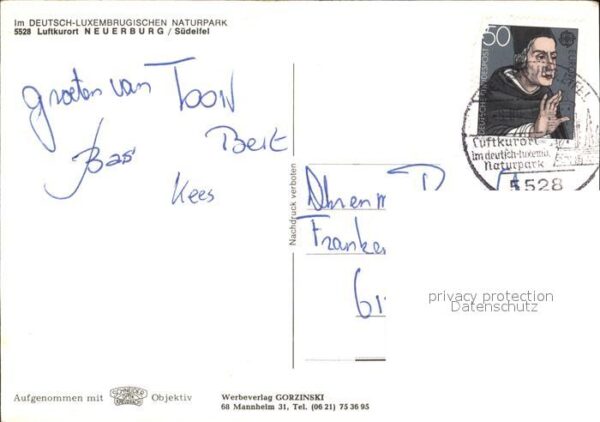 Im DEUTSCH-LUXEMBRUGISCHEN NATURPARK
5528 Luftkurort NEUERBURG / Südeifel
50
DEUTSCHE BUNDESPOST
EUROPA
Luftkurort
im deutsch-luxemb.
Naturpark
5528
groeten van TOON
Bert
Bas
Kees
Nachdruck verboten
Franken
privacy protection
Datenschutz
Aufgenommen mit
SCHNEIDER
KREUZNACH
Objektiv
Werbeverlag GORZINSKI
68 Mannheim 31, Tel. (06 21) 75 36 95